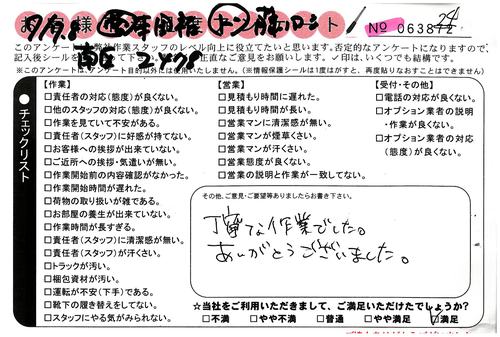 お 様 度 ート
№ 063872
24
このアンケートは弊社作業スタッフのレベル向上に役立てたいと思います。否定的なアンケートになりますので、
記入後シールを 正直なご意見をお願いします。✓印は、いくつでも結構です。
※このアンケートは、アンケート目的以外には使用いたしません。(※情報保護シールは1度がすと、再度貼りなおすことはできません)
チェックリスト
【作業】
□責任者の対応(態度)が良くない。
□他のスタッフの対応(態度)が良くない。
□作業を見ていて不安がある。
□責任者(スタッフ)に好感が持てない。
□お客様への挨拶が出来ていない。
□ご近所への挨拶・気遣いが無い。
□作業開始前の内容確認がなかった。
□作業開始時間が遅れた。
□荷物の取り扱いが雑である。
□お部屋の養生が出来ていない。
□作業時間が長すぎる。
□責任者(スタッフ)に清潔感が無い。
□責任者(スタッフ)が汗くさい。
□トラックが汚い。
□梱包資材が汚い。
□運転が不安(下手)である。
□靴下の履き替えをしてない。
□スタッフにやる気がみられない。
【営業】
□見積もり時間に遅れた。
□見積もり時間が長い。
□営業マンに清潔感が無い。
□営業マンが煙草くさい。
□営業マンが汗くさい。
□営業態度が良くない。
□営業の説明と作業が一致してない。
【受付・その他】
□電話の対応が良くない。
□オプション業者の説明
・作業が良くない。
□オプション業者の対応
(態度)が良くない。
その他、ご意見・ご要望等ありましたらお書き下さい。
丁寧な作業でした。
ありがとうございました。
☆当社をご利用いただきまして、ご満足いただけたでしょうか?
□不満 □やや不満 □普通 □やや満足 ☑満足